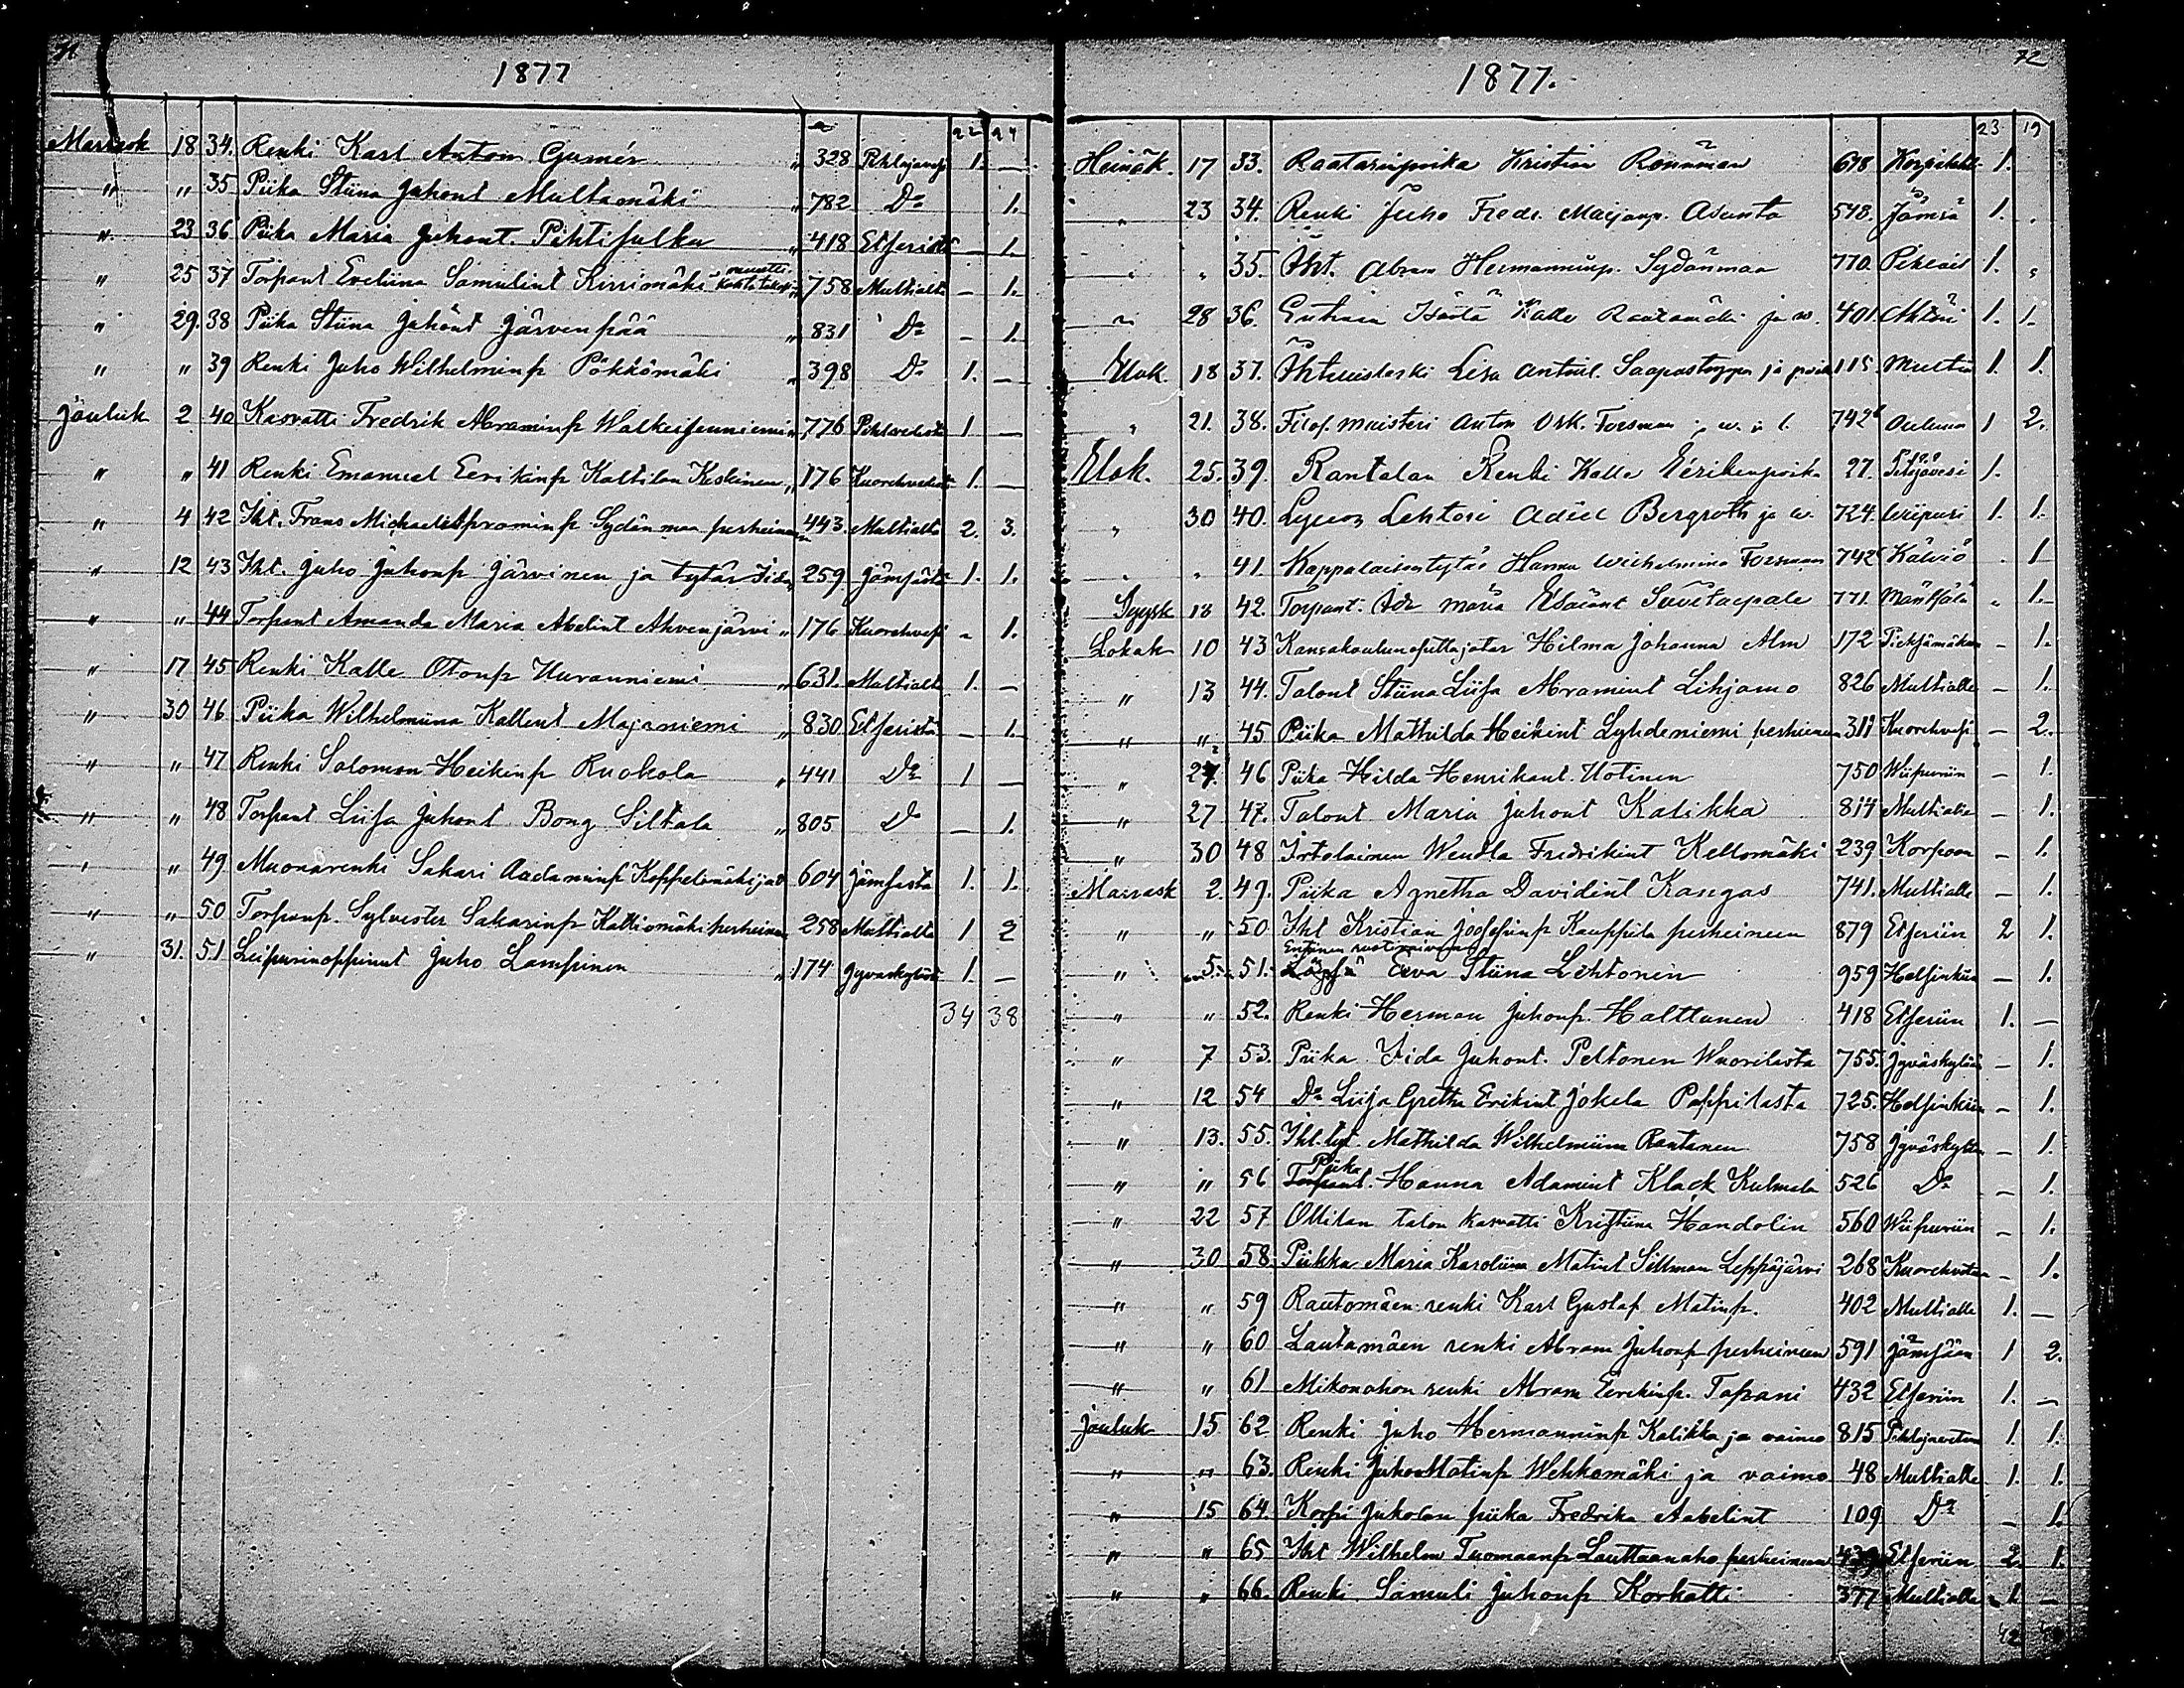 71
1877
22 24
Marrask 18 34. Renki Karl Anton Gumér " 328 Pihlajavp 1. —
" " 35 Piika Stiina Juhont Multamäki " 782 Do 1.
" 23 36 Piika Maria Juhont. Pihtisulku " 418 Etseristä — 1.
" 25 37 Torpant Eveliina Samulint Kirrimäki muutti " 758 Multialta — 1.
" 29. 38 Piika Stiina Juhont Järvenpää " 831 Do — 1.
" " 39 Renki Juho Wilhelminp Pökkömäki " 398 Do 1. —
Jouluk 2 40 Kasvatti Fredrik Abraminp Walkeisenniemi " 776 Pihlavedeltä 1 —
" " 41 Renki Emanuel Eerikinp Kaltilan Keskinen " 176 Kuorehvedeltä 1. —
" 4 42 Iht. Frans Michael Aprominp Sydänmaa perheineen 443. Multialta 2. 3.
" 12 43 Iht. Juho Juhonp Järvinen ja tytär Iida 259 Jämsästä 1. 1.
" " 44 Torpant Amanda Maria Abelint Ahvenjärvi " 176 Kuorehvesi - 1.
" 17 45 Renki Kalle Otonp Uuranniemi " 631. Multialta 1. —
" 30 46 Piika Wilhelmiina Kallent Majaniemi " 830 Etseristä — 1.
" " 47 Renki Salomon Heikinp Ruokola " 441 Do 1 —
" " 48 Torpant Liisa Juhont Bong Siltala " 805 Do — 1.
" " 49. Muonarenki Sakari Aadaminp Koppelomäki ja v 604 Jämsästä 1. 1.
" " 50 Torpanp. Sylvester Sakarinp Kalliomäki perheineen 258 Multialta 1 2
" 31. 51 Leipurinoppinut Juho Lampinen " 174 Jyväskylästä 1. —
34 38
72
1877.
23 19
Heinäk. 17 33. Raatarinpoika Kristian Rönnman 698 1.
" 23 34. Renki Juho Fredr. Maijanp. Asunta 548. Jämsä 1.
" " 35. Iht. Abram Hermanninp. Sydänmaa 770. 1.
" 28 36. Entinen Isäntä Kalle Raatamäki ja w. 401. Ähtäri 1. 1.
Elok. 18 37. Liisa Antint. ja poika 115 Multia 1. 1.
" 21. 38. Filos. maisteri Anton Osk. Forsman 742 Ouluun 1 2.
Elok. 25. 39. Rantalan Renki Kalle Eerikinpoika 27. Pihlajavesi 1.
" 30 40. Lyceon Lehtori Adiel Bergroth ja w. 724. Wiipuri 1. 1.
" " 41. Kappalaisentytär Hanna Wilhelmina Forsman 742 Kälviö - 1
Syysk 18 42. Torpant. Ada Maria Esaiant Suvitaipale 771. Mäntsälä " 1.
Lokak 10 43 Kansakoulunopettajatar Hilma Johanna Alm 172 Pieksämäkeen - 1.
" 13 44. Talont Stiina Liisa Abramint Lihjamo 826 Multialle - 1.
" " 45 Piika Mathilda Heikint Lyhdeniemi perheineen 311 Kuorehvesi — 2.
" 27. 46 Piika Hilda Henrikant. Uotinen 750 Wiipuriin — 1.
" 27 47. Talont Maria Juhont Kalikka 814 Multialle — 1.
" 30 48 Irtolainen Wendla Fredrikint Kellomäki 239 Korpoon — 1.
Marrask 2. 49. Piika Agnetha Davidint Kangas 741. Multialle — 1.
" " 50 Iht Kristian Joosepinp Kauppila perheineen 879 Etseriin 2 1.
Entinen ruotivaivainen
" 5. 51. Eeva Stiina Lehtonen 959 Helsinkiin — 1.
" " 52. Renki Herman Juhonp. Halttunen 418 Etseriin 1. —
" 7 53. Piika Iida Juhont. Peltonen Wuorilasta 755. Jyväskylään — 1.
" 12 54 Do Liisa Gretha Erikint Jokela Pappilasta 725. Helsinkiin — 1.
" 13. 55. Iht. tyt. Mathilda Wilhelmiina Rantanen 758 Jyväskylään — 1.
Piika
" " 56 Torpant. Hanna Adamint Klack Kulmala 526 Do — 1.
" 22 57 Ollilan talon kasvatti Kristiina Handolin 560 Wiipuriin — 1.
" 30 58. Piikka Maria Karoliina Matint Sillman Leppäjärvi 268 Kuorehveteen — 1.
" " 59 Rautomäen renki Karl Gustaf Matinp. 402 Multialle 1. —
" " 60 Lautamäen renki Abram Juhonp perheineen 591 Jämsään 1 2.
" " 61 Mikonahon renki Abram Eerikinp. Tapani 432 Etseriin 1. —
Jouluk 15 62 Renki Juho Hermanninp Kalikka ja vaimo 815 Pihlajaveteen 1. 1.
" " 63. Renki Juho Matinp Wehkomäki ja vaimo 48 Multialle 1. 1.
" 15 64. Korpi Jukolan piika Fredrika Aabelint 109 Do — 1.
" " 65 Iht Wilhelm Tuomaanp Lauttaanaho perheineen Etseriin 2. 1.
" " 66. Renki Samuli Juhonp Korkatti 377 Multialle 1 —
42